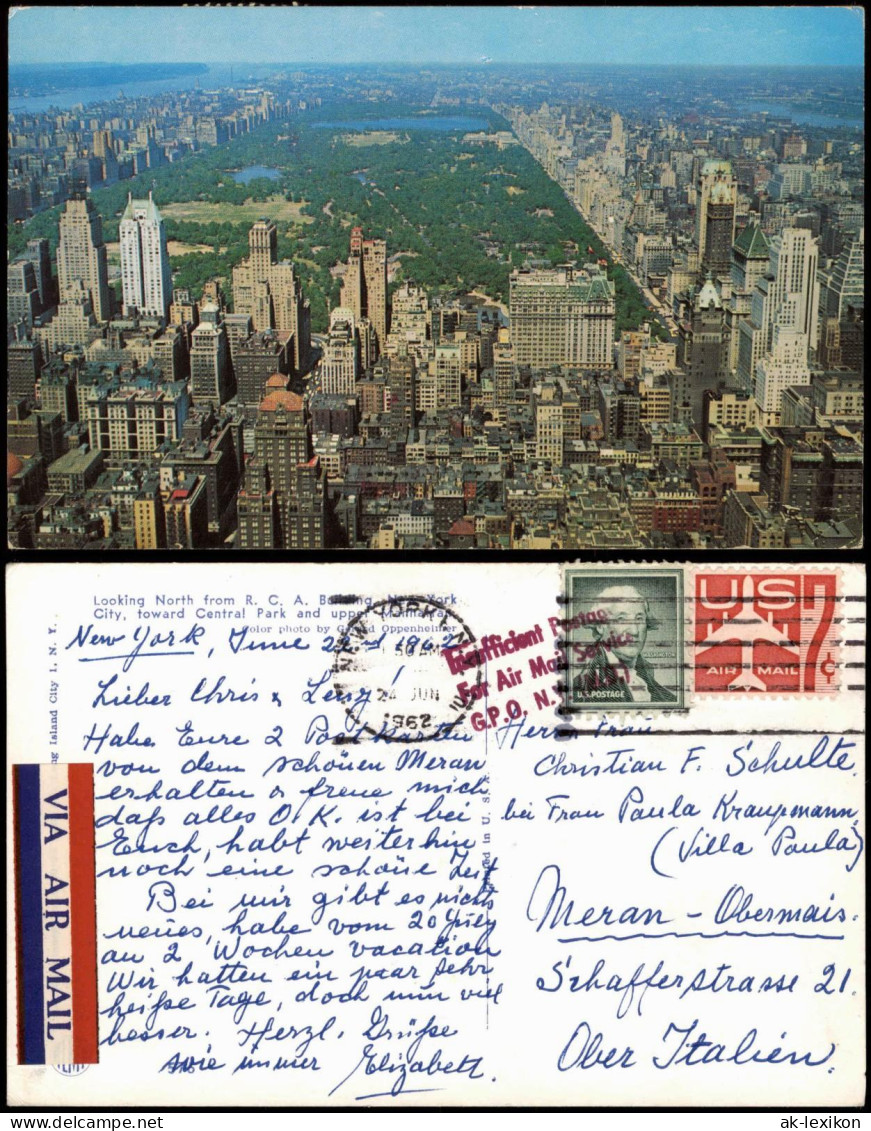 Looking North from R. C. A. Building, New York
City, toward Central Park and upper Manhattan.
Color photo by Oppenheimer
New York, June 1962
Lieber Chris & Leny!
Habe Eure 2 Post Karten
von dem schönen Meran
erhalten & freue mich
daß alles O.K. ist bei
Euch, habt weiterhin
noch eine schöne Zeit
Bei mir gibt es nichts
neues, habe vom 20 July
an 2 Wochen vacation
Wir hatten ein paar sehr
heiße Tage, doch nun viel
besser. Herzl. Grüße
wie immer Elizabeth
Island City 1, N. Y.
VIA AIR MAIL
in U. S.
NEW YORK, N.Y.
AM
24 JUN
1962
Insufficient Postage
For Air Mail Service
G.P.O. N.Y.
U.S. POSTAGE
US 7¢
AIR MAIL
Herr Frau
Christian F. Schulte
bei Frau Paula Kraupmann
(Villa Paula)
Meran - Obermais.
Schafferstrasse 21.
Ober Italien.
ak-lexikon